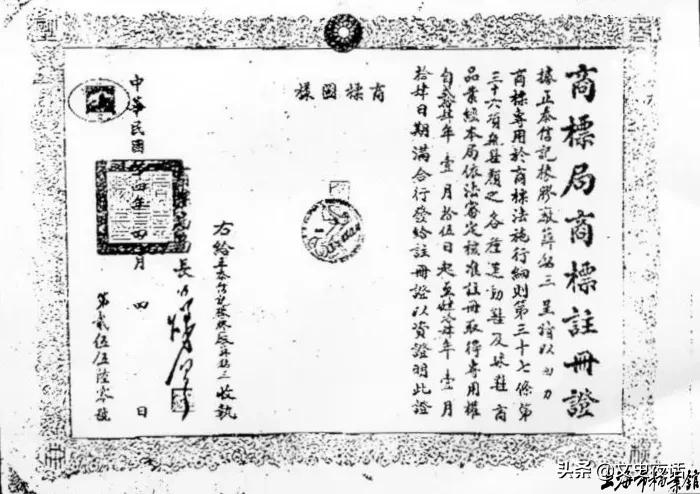 商標局商標註冊證
據正泰信記橡膠廠薛銘三呈請以回力
商標專用於商標法施行細則第三十七條第
三十六項靴鞋類之各種運動鞋及球鞋商
品業經本局依法審定核准註冊取得專用權
自貳拾肆年壹月拾伍日起至肆拾肆年壹月
拾肆日期滿合行發給註冊證以資證明此證
商標圖樣
右給正泰信記橡膠廠薛銘三收執
局長
中華民國 四年四月四日
第貳伍伍陸零號
头条@文史夜话
上海市档案馆